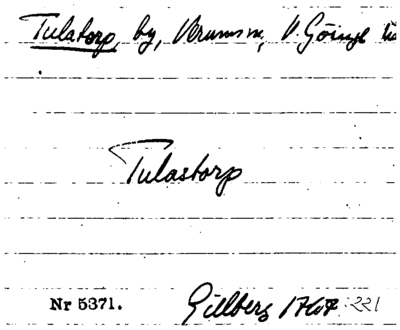 Tulatorp, by, Verums sn, V. Göinge
Tulastorp
Nr 5371. Gillberg 1767 :221